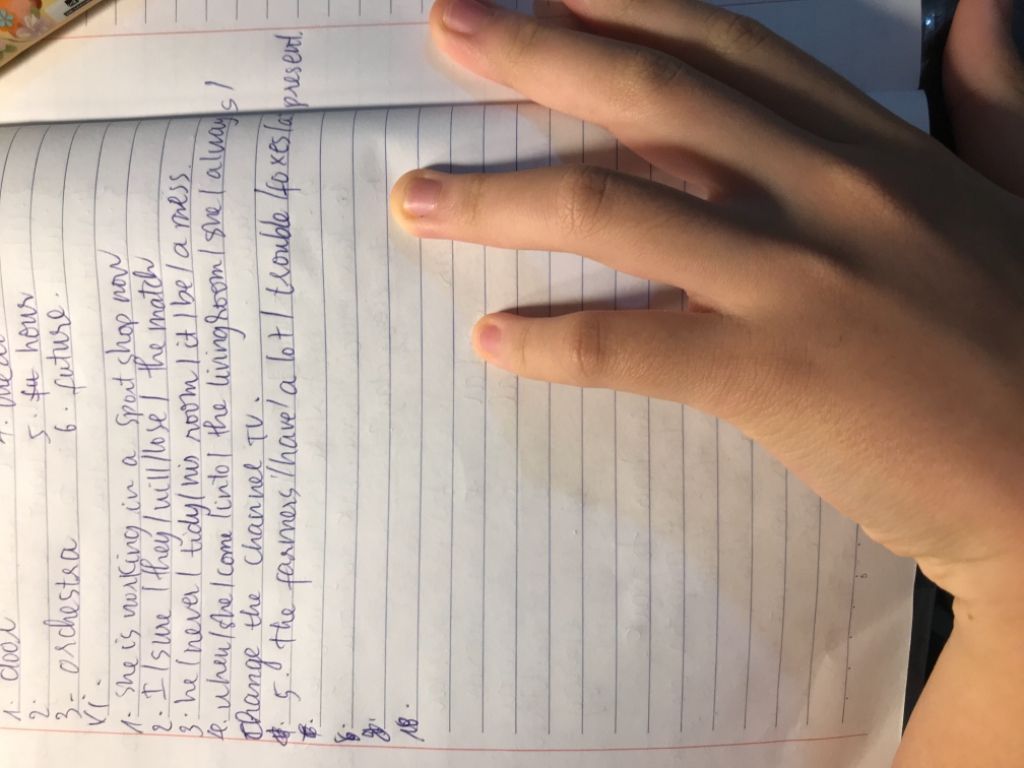 1. door
2.
3. orchestra
5. hour
6. future.
VI.
1. she is working in a sport shop now
2. I / sure / they / will / lose / the match
3. he / never / tidy / his room / it / be / a mess.
4. when / she / come / into / the livingroom / she / always /
change the channel TV.
5. the farmers / have / a lot / trouble / foxes / at present.
8.